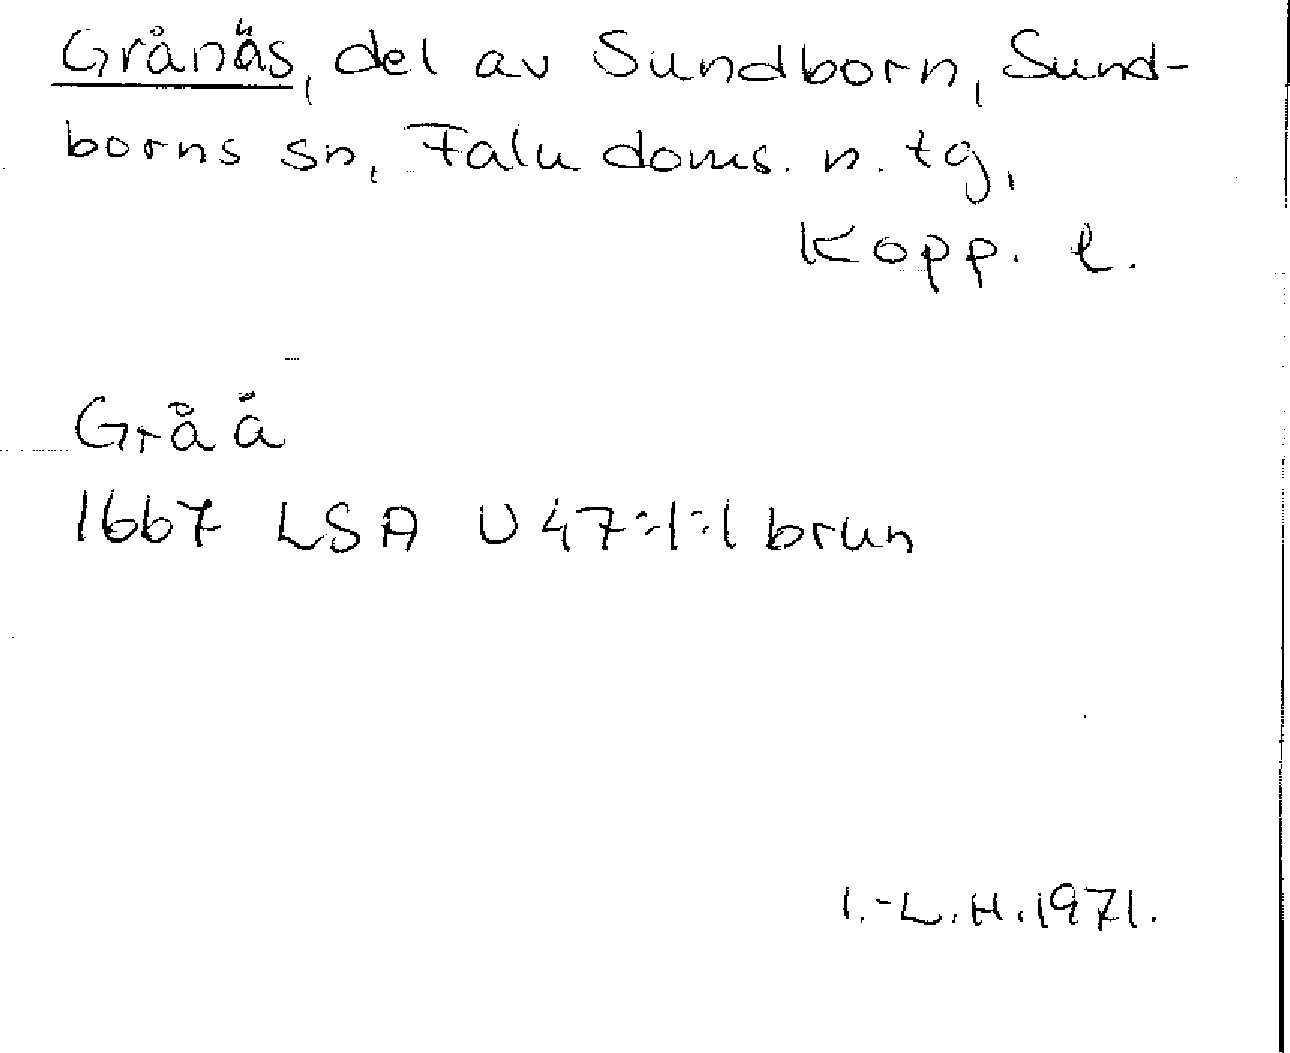 Grånäs, del av Sundborn, Sund-
borns sn, Falu doms. n. tg,
Kopp. l.
Grå å
1667 LSA U 47:1:1 brun
I.-L.H. 1971.